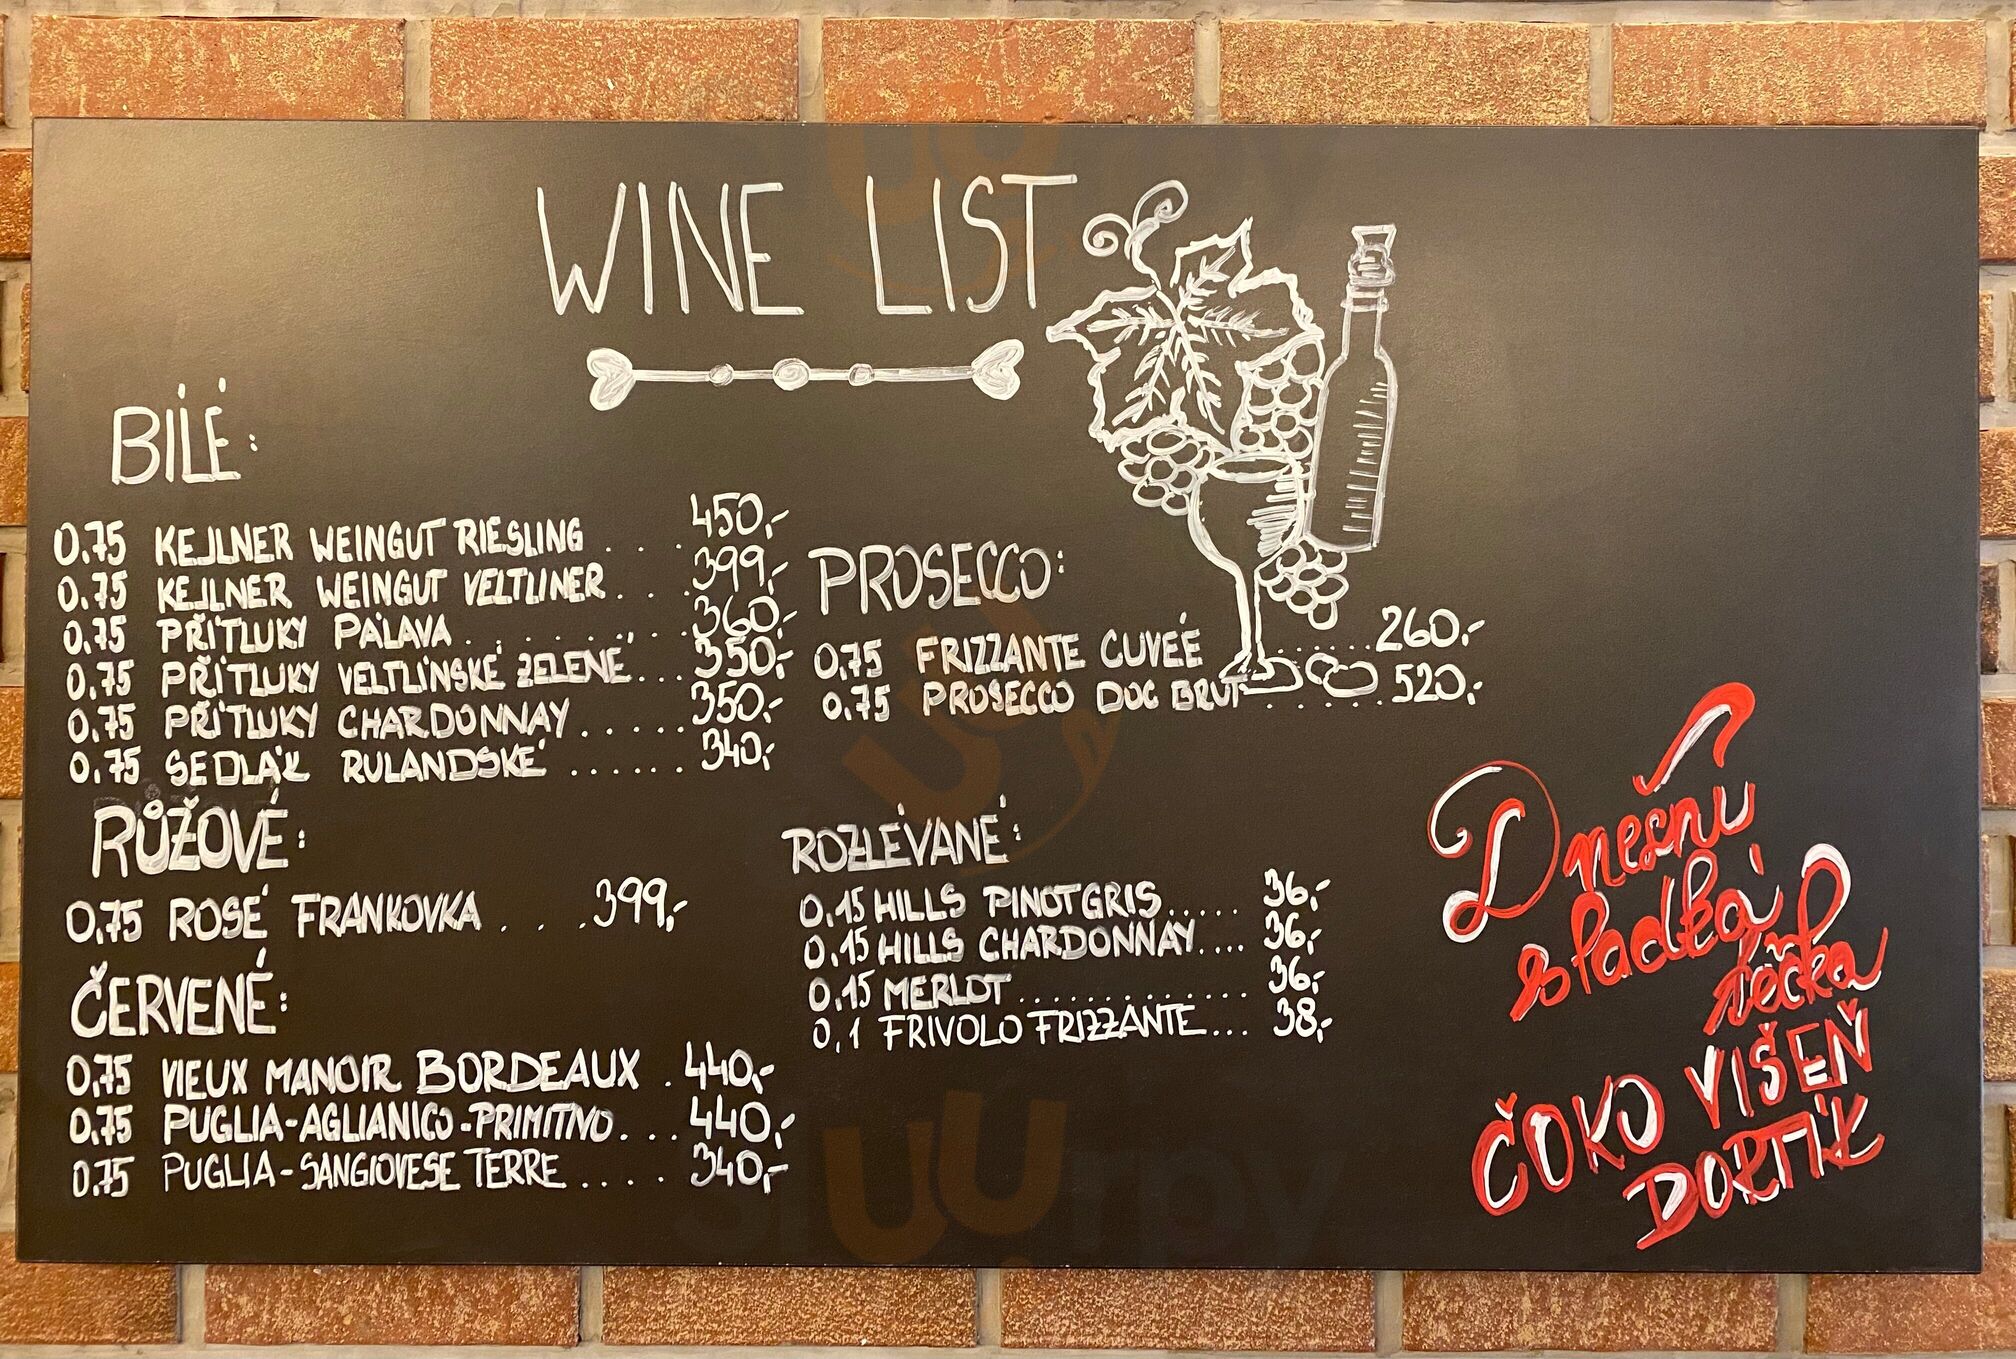 WINE LIST
BÍLÉ:
0.75 KELLNER WEINGUT RIESLING . . . 450,-
0.75 KELLNER WEINGUT VELTLINER . . . 399,-
0.75 PŘÍTLUKY PÁLAVA . . . . . . . . . 360,-
0.75 PŘÍTLUKY VELTLÍNSKÉ ZELENÉ . . . 350,-
0.75 PŘÍTLUKY CHARDONNAY . . . . . 350,-
0.75 SEDLÁK RULANDSKÉ . . . . . . 340,-
RŮŽOVÉ:
0,75 ROSÉ FRANKOVKA . . . 399,-
ČERVENÉ:
0,75 VIEUX MANOIR BORDEAUX . 440,-
0,75 PUGLIA-AGLIANICO-PRIMITIVO . . . 440,-
0,75 PUGLIA-SANGIOVESE TERRE . . . . 340,-
PROSECCO:
0,75 FRIZZANTE CUVEÉ . . . . . . 260,-
0,75 PROSECCO DOC BRUT . . . . . . 520,-
ROZLÉVANÉ:
0,15 HILLS PINOT GRIS . . . . . 36,-
0,15 HILLS CHARDONNAY . . . . 36,-
0,15 MERLOT . . . . . . . . . . . . . 36,-
0,1 FRIVOLO FRIZZANTE . . . 38,-
Dnešní
sladká
tečka
ČOKO VIŠEŇ
DORTÍK